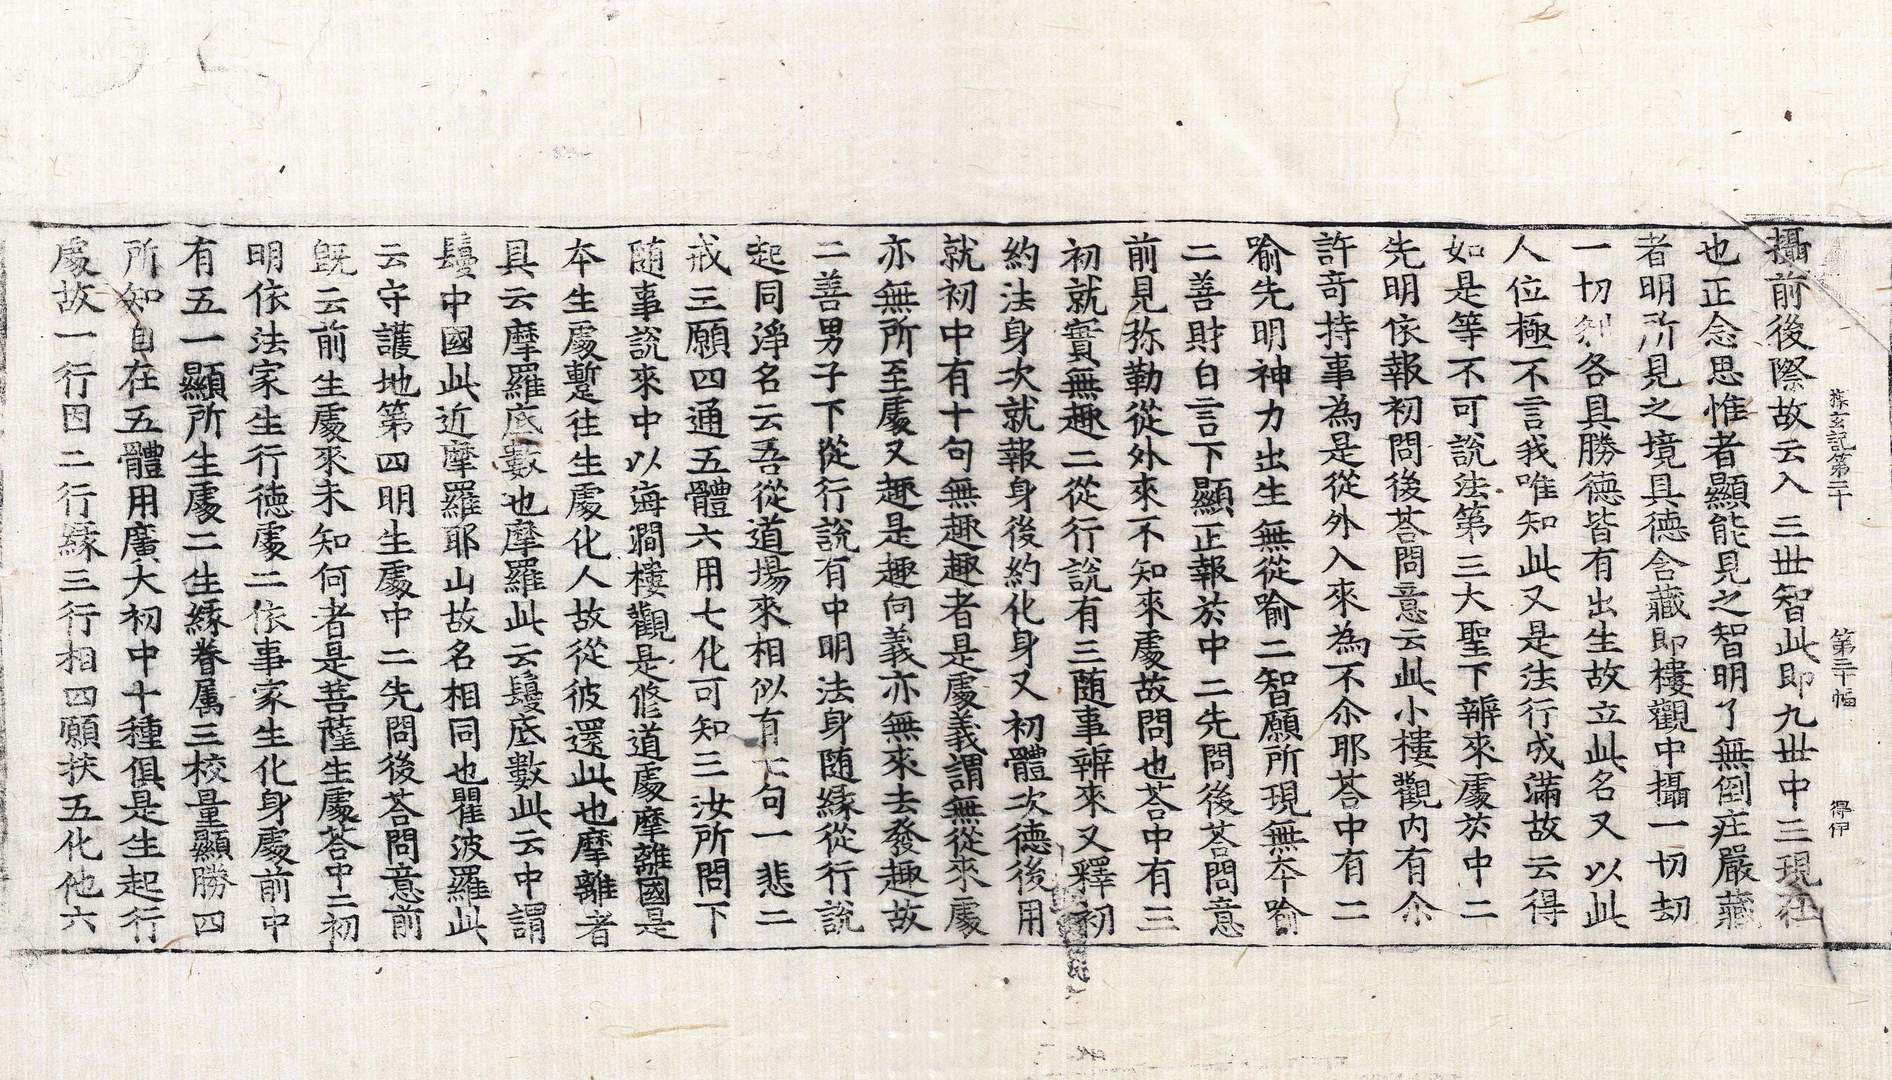 探玄記第二十 第二十幅 得伊
攝前後際故云入三世智此即九世中三現在
也正念思惟者顯能見之智明了無倒莊嚴藏
者明所見之境具德含藏即樓觀中攝一切劫
一切刹各具勝德皆有出生故立此名又以此
人位極不言我唯知此又是法行成滿故云得
如是等不可説法第三大聖下辨來處於中二
先明依報初問後荅問意云此小樓觀内有尒
許竒持事為是從外入來為不尒耶荅中有二
喻先明神力出生無從喻二智願所現無本喻
二善財白言下顯正報於中二先問後荅問意
前見弥勒從外來不知來處故問也荅中有三
初就實無趣二從行説有三随事辨來又釋初
約法身次就報身後約化身又初體次德後用
就初中有十句無趣趣者是處義謂無從來處
亦無所至處又趣是趣向義亦無來去發趣故
二善男子下從行説有中明法身随緣從行説
起同淨名云吾從道場來相似有七句一悲二
戒三願四通五體六用七化可知三汝所問下
随事説來中以海澗樓觀是修道處摩離國是
本生處蹔往生處化人故從彼還此也摩離者
具云摩羅底數也摩羅此云鬘底數此云中謂
鬘中國此近摩羅耶山故名相同也瞿波羅此
云守護地第四明生處中二先問後荅問意前
既云前生處來未知何者是菩薩生處荅中二初
明依法家生行德處二依事家生化身處前中
有五一顯所生處二生緣眷属三挍量顯勝四
所知自在五體用廣大初中十種俱是生起行
處故一行因二行緣三行相四願扶五化他六